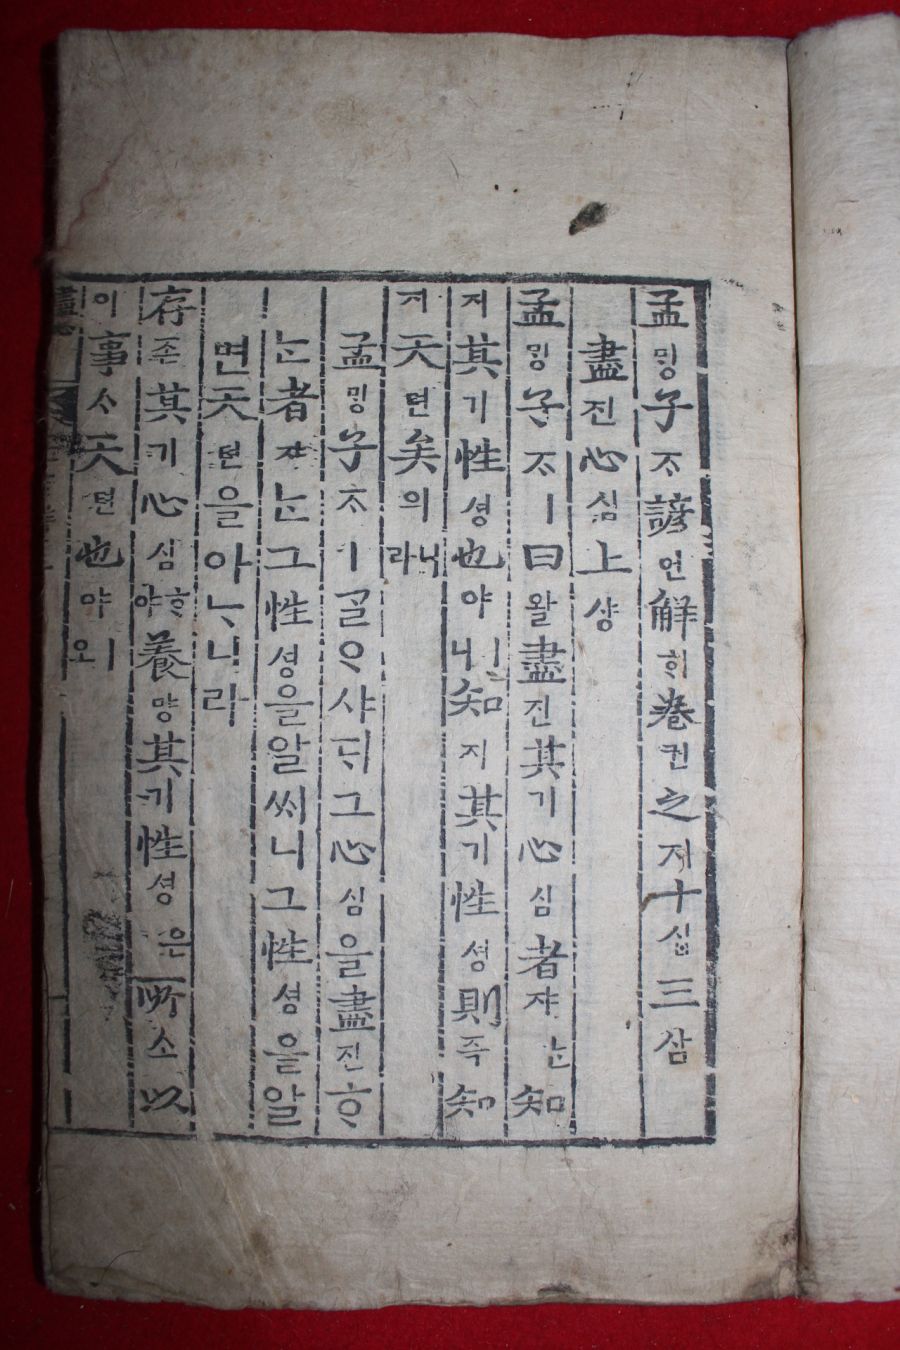 孟밍子ᄌᆞ諺언解ᄒᆡ卷권之지十십三삼
盡진心심上샹
孟밍子ᄌᆞㅣ曰왈盡진其기心심者쟈ᄂᆞᆫ知
지其기性셩也야ㅣ니知지其기性셩則즉知
지天텬矣의니라
孟밍子ᄌᆞㅣ ᄀᆞᆯᄋᆞ샤ᄃᆡ그心심을盡진ᄒᆞ
ᄂᆞᆫ者쟈ᄂᆞᆫ그性셩을알씨니그性셩을알
면天텬을아ᄂᆞ니라
存존其기心심ᄒᆞ야養양其기性셩은所소以
이事ᄉᆞ天텬也야ㅣ오